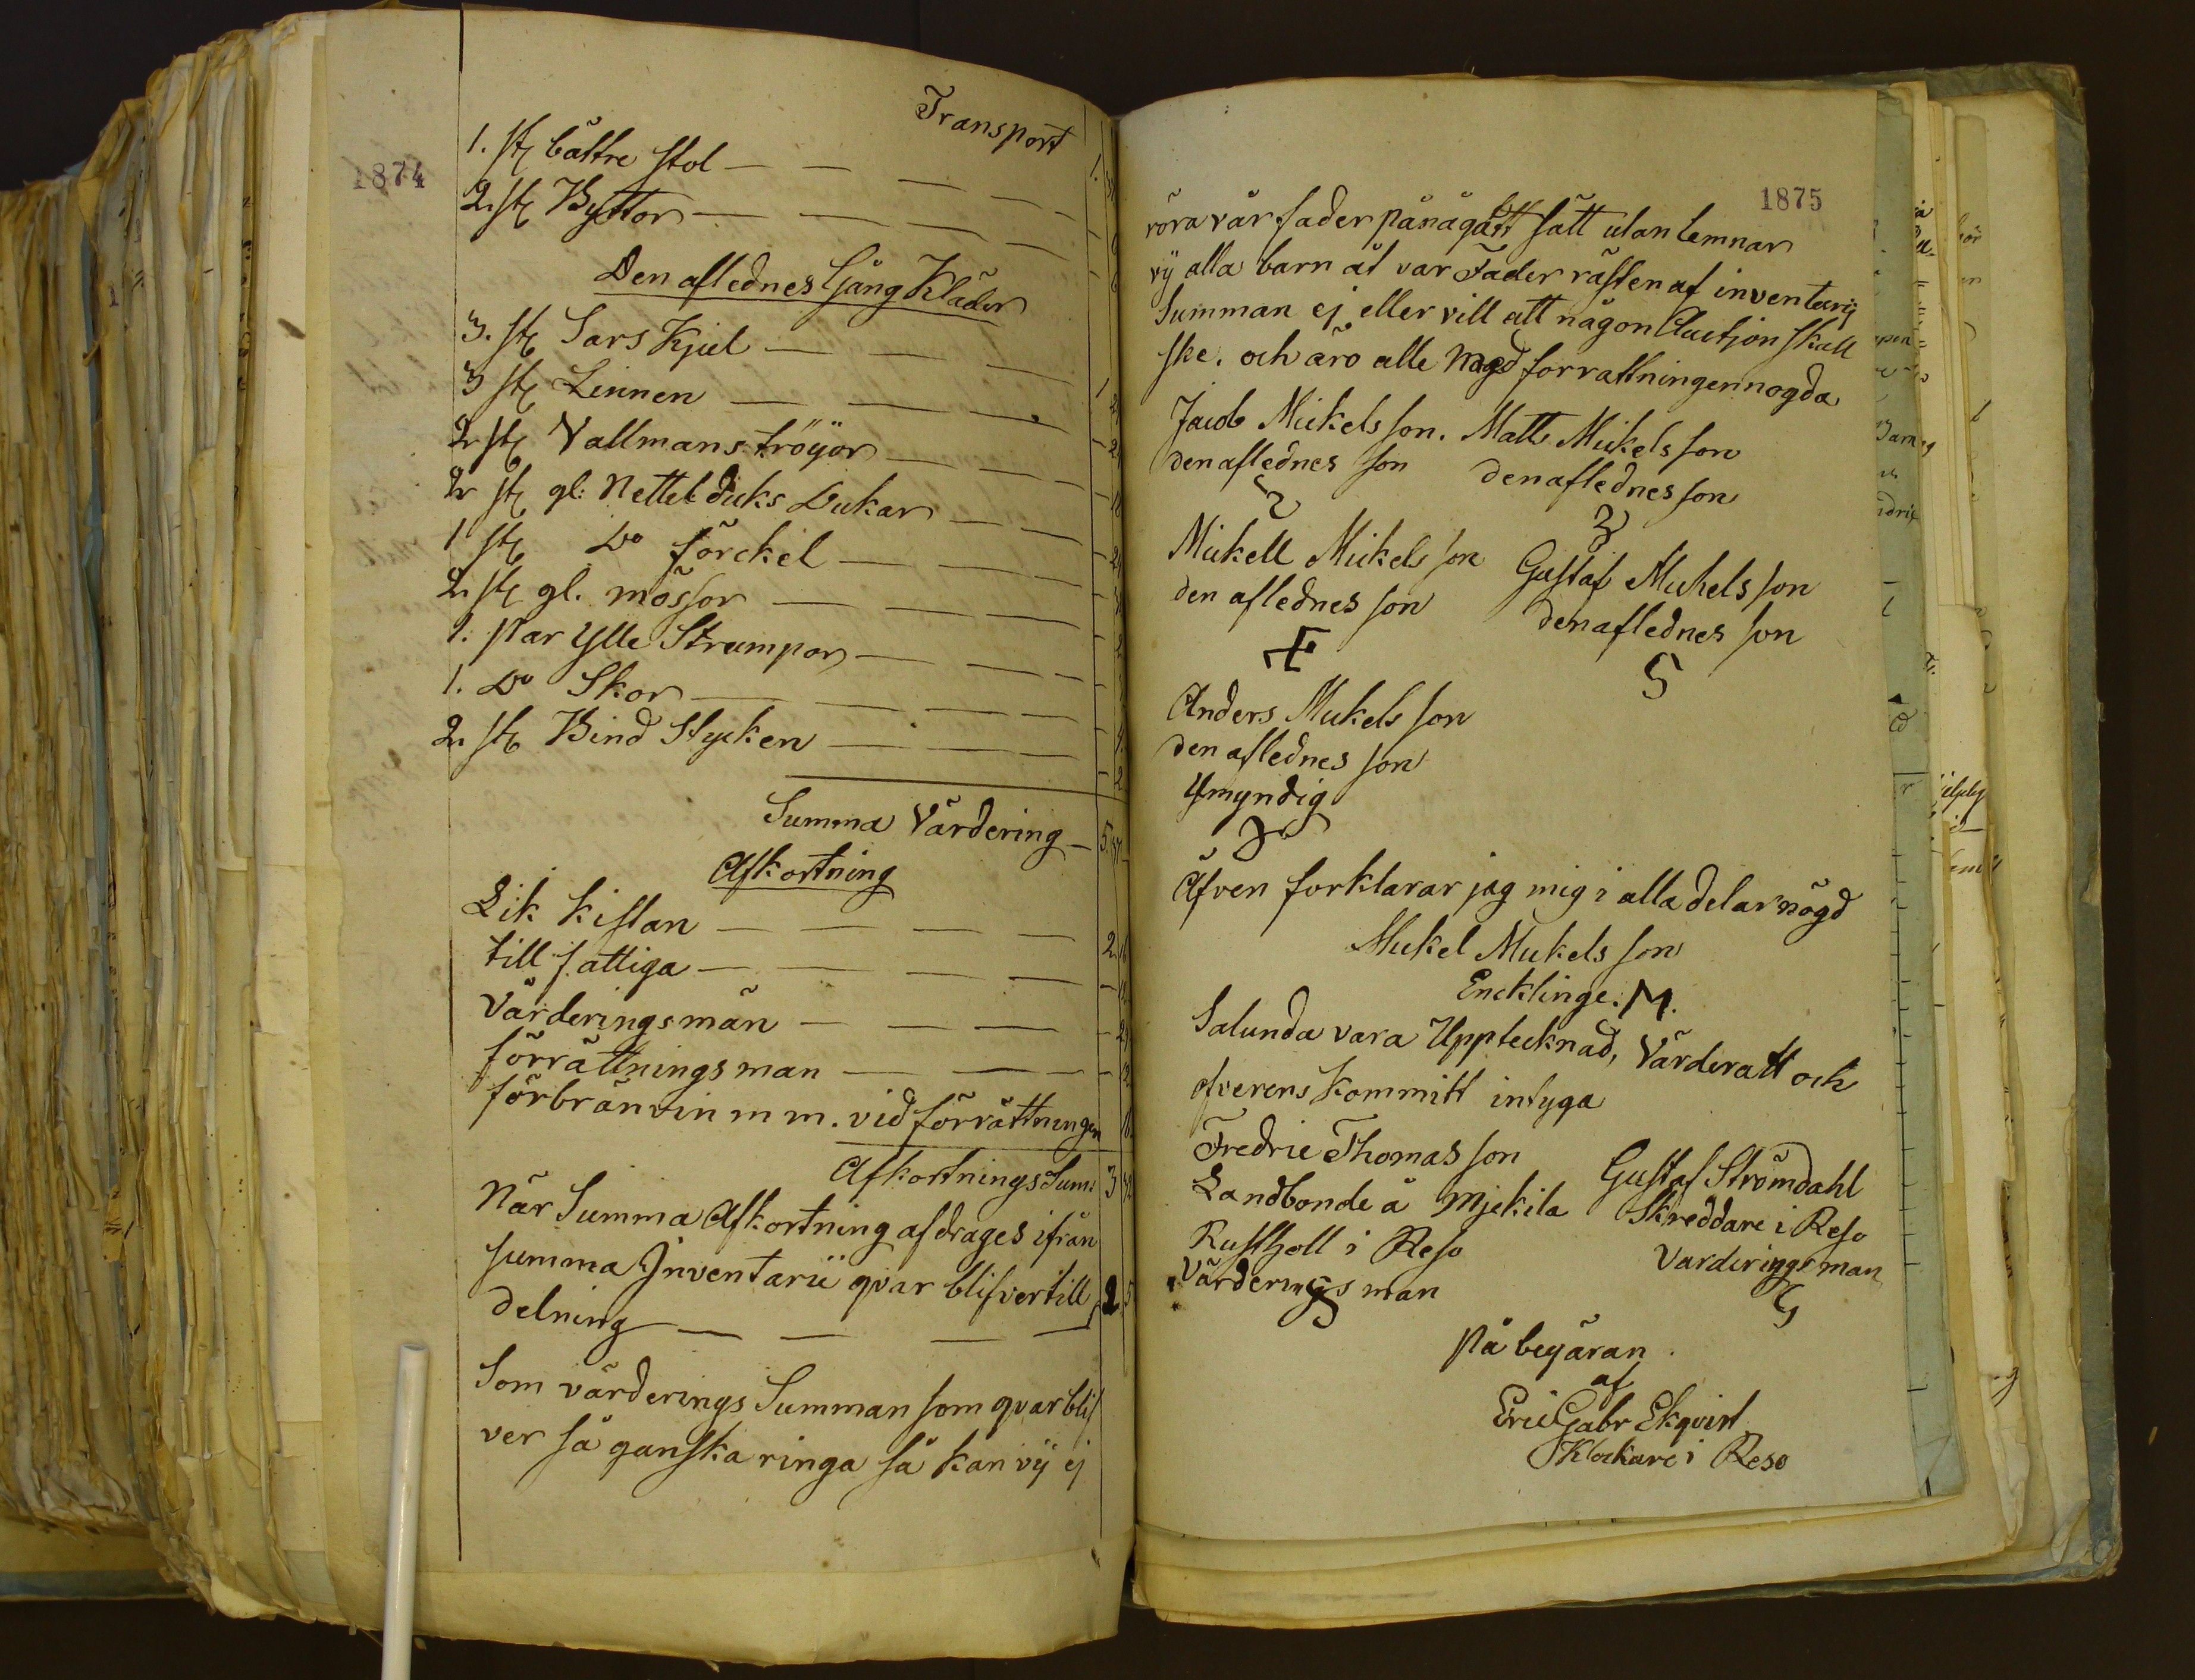 1874
Transport
1. st bättre stol — — — — 1.
2. st Byttor — — — — — 6
Den aflednes Gång Kläder
3. st Sars Kjel — — — —
3 st Linnen — — — — 1 24
2 st Vallmans tröÿor — — — 24
2 st gl: Nettelduks Dukar — — — 18
1 st Do förckel — — — — 24
2. st gl. mössor — — — —
1. Par Ylle Strumpor — — — —
1. Do Skor — — — —
2. st Bind Stycken — — — — 2
Summa Värdering — 5.
Afkortning
Lik kistan — — — — 2 16
till fattiga — — — — — 12
Värderingsmän — — — — 24
förrättningsman — — — — 12
för bränvin m m. vid förrättningen 18
Afkortnings Sum: 3
När Summa Afkortning afdrages ifrån
summa Inventarii qvar blifver till
delning — — — — 2 5
Som värderings Summan som qvar blif
ver så ganska ringa så kan vÿ ej
1875
röra vår fader på någått sätt utan lemnar
vÿ alla barn åt var Fader rästen af inventarij
Summan ej eller vill att någon Auctjon skall
ske. och äro alle Med forrattningen nogda
Jacob Mickelsson. Matts Mickelsson
den aflednes son den aflednes son
Mickell Mickelsson Gustaf Mickelsson
den aflednes son den aflednes son
Anders Mickelsson
den aflednes son
Ymyndig
Äfven forklarar jag mig i alla delar nögd
Mickel Mickelsson
Encklinge. M.
Salunda vara Upptecknad, Värderatt och
öfverens kommitt intyga
Fredric Thomasson Gustaf Strömdahl
Landbonde å Mjekila Skreddare i Reso
Rusthåll i Reso Varderingsman
Värderingsman
På begäran
af
Eric Gabr Ekqvist
Klockare i Reso